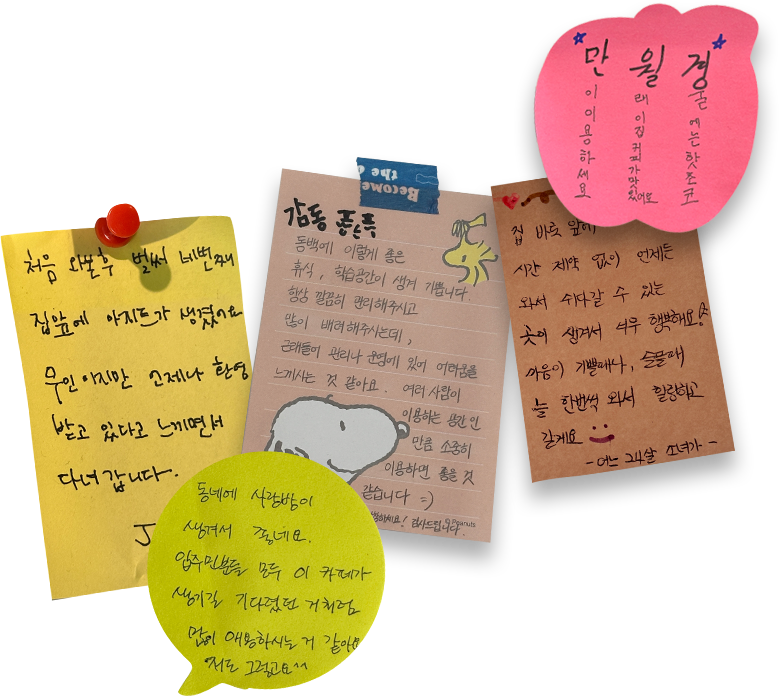 만 월 경
이이용하세요
래이집커피가맛있어도
울에는핫초코
처음 오픈후 벌써 네번째
집앞에 아지트가 생겼어요
무인이지만 언제나 환영
받고 있다고 느끼면서
다녀갑니다.
J
Become
the
감동 폭스푹
동백에 이렇게 좋은
휴식, 학습공간이 생겨 기쁩니다.
항상 깔끔히 관리해주시고
많이 배려해주시는데,
근래들어 관리나 운영에 있어 어려움을
느끼시는 것 같아요. 여러 사람이
이용하는 공간인
만큼 소중히
이용하면 좋을 것
같습니다 =)
감사드립니다.
© Peanuts
집 바로 앞에
시간 제약 없이 언제든
와서 쉬다갈 수 있는
곳이 생겨서 너무 행뽁해요!
마음이 기쁠때나, 슬플때
늘 한번씩 와서 힐링하고
갈게요
- 어느 24살 소녀가 -
동네에 사랑방이
생겨서 좋네요.
입주민분들 모두 이 카페가
생기길 기다렸던 거처럼
많이 애용하시는거 같아요
저도 그렇고요^^